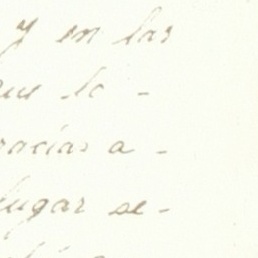 y en las
que lo -
racias a -
lugar se-